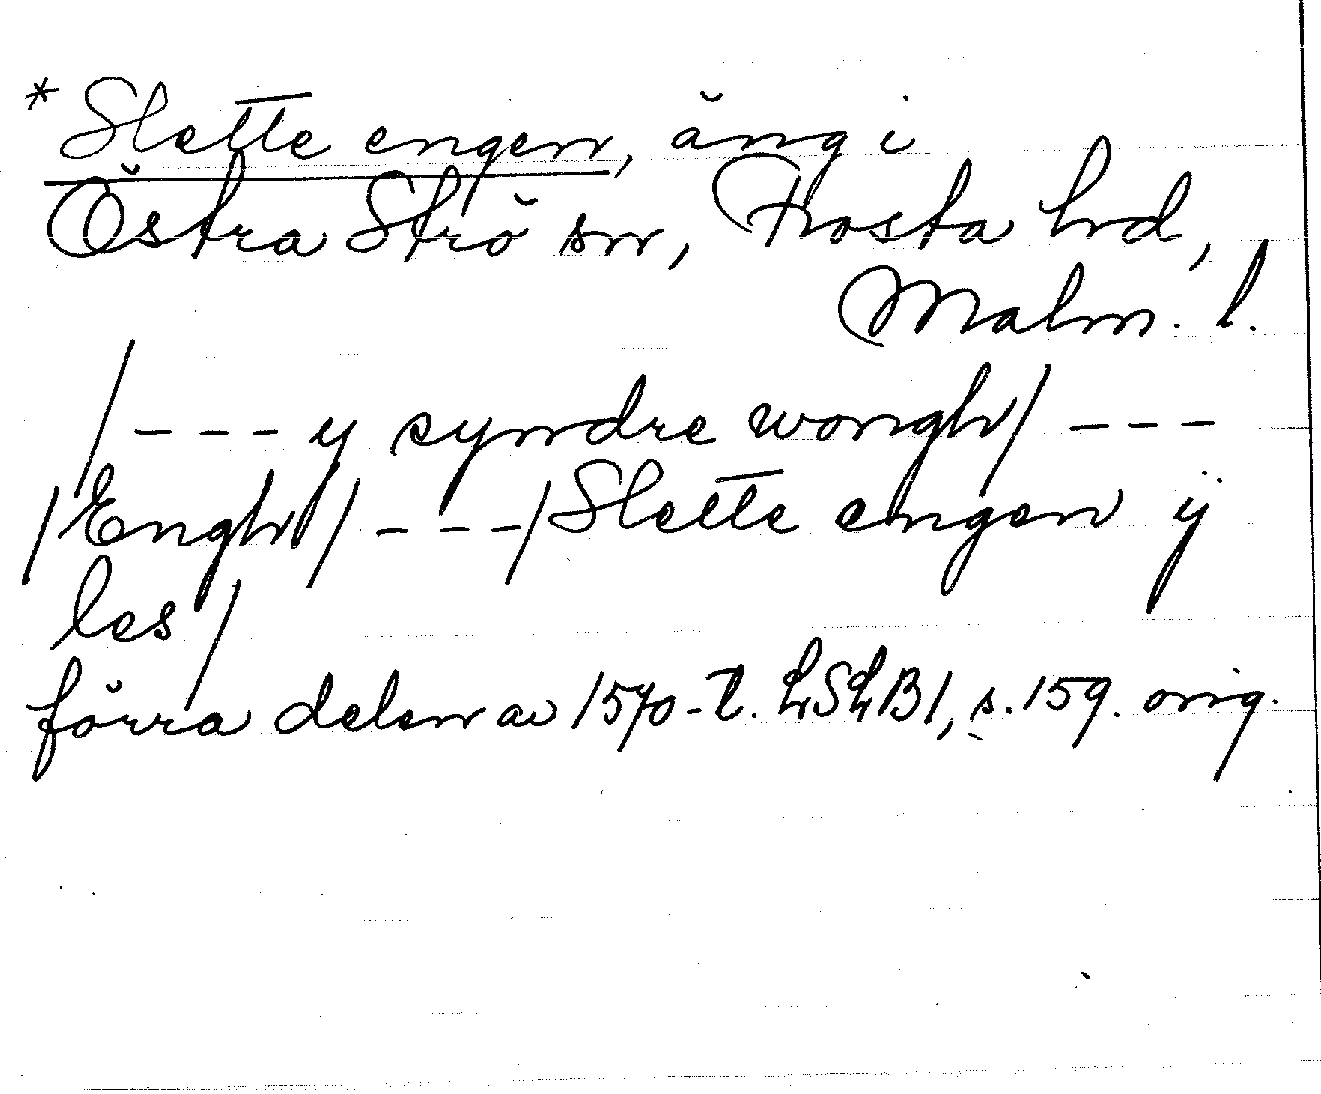 *Slette engen, äng i
Östra Strö sn, Frosta hd,
Malm. l.
/ - - - y syndre wongh/ - - -
/Engh/ - - - /Slette engen ÿ
les/
förra delen av 1570-t. LSLB1, s. 159. orig.